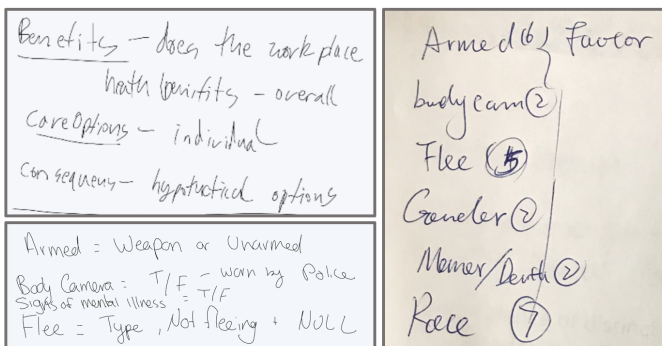 Benefits – does the workplace
heath benifits – overall
Care Options – individual
Consequens – hypothetical options
Armed = Weapon or Unarmed
Body Camera = T/F – worn by Police
Signs of mental illness = T/F
Flee = Type, Not fleeing + NULL
Armed (6) } Factor
bodycam (2)
Flee (5)
Gender (2)
Manner/Death (2)
Race (7)